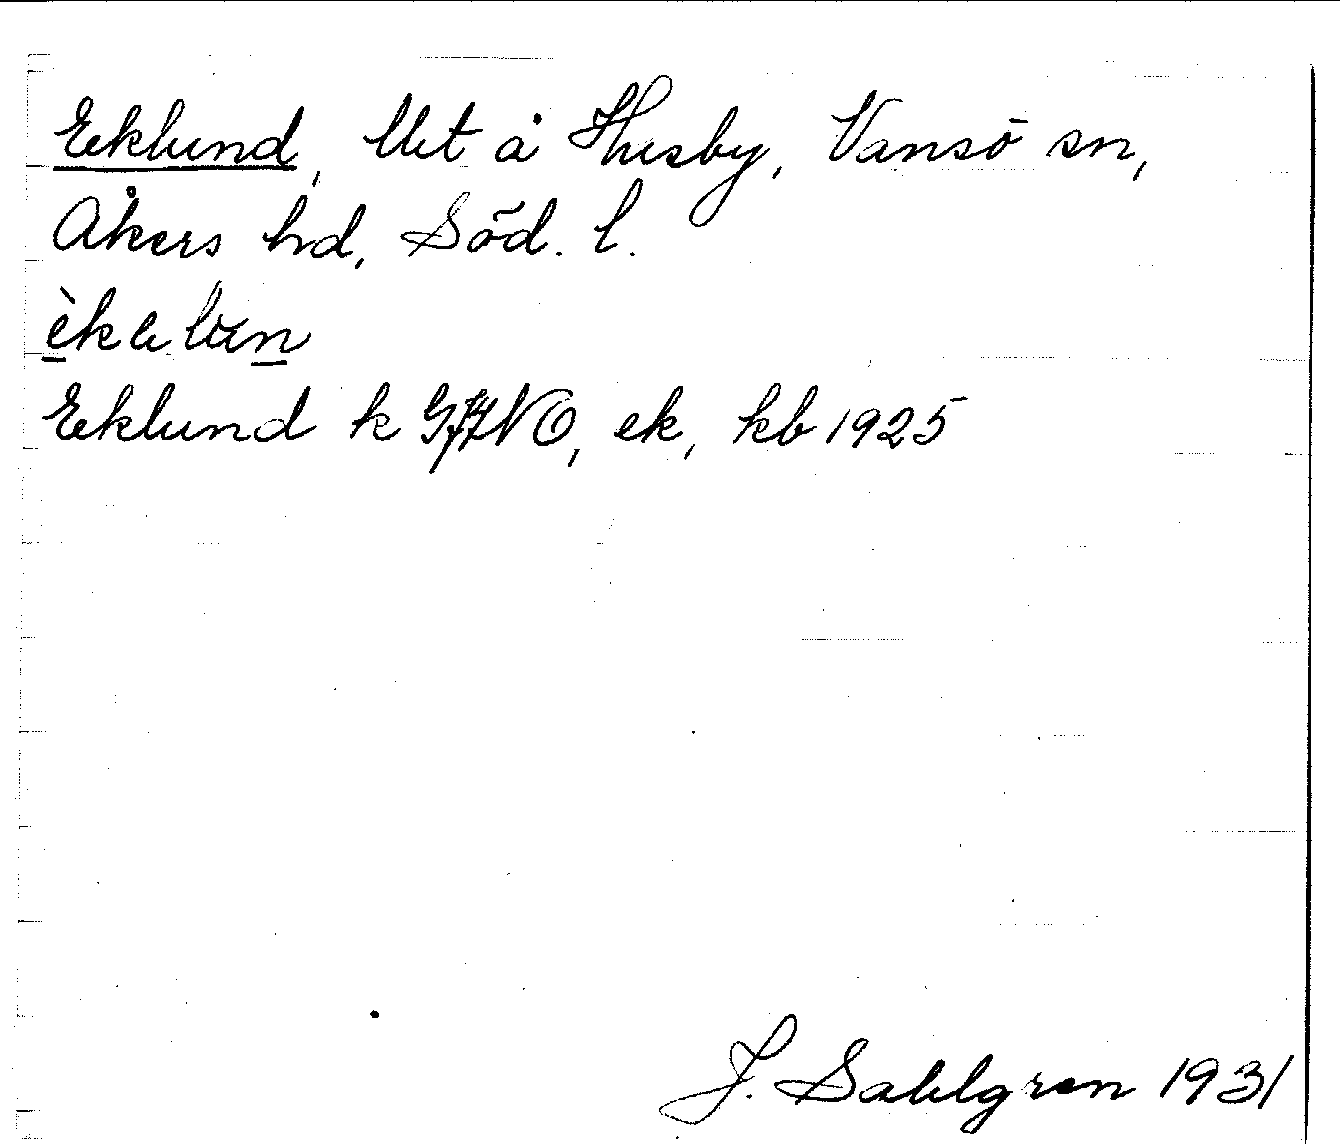 Eklund, Ut å Husby, Vansö sn,
Åkers hd, Söd. l.
Eklund k NO, ek, kb 1925
J. Sahlgren 1931